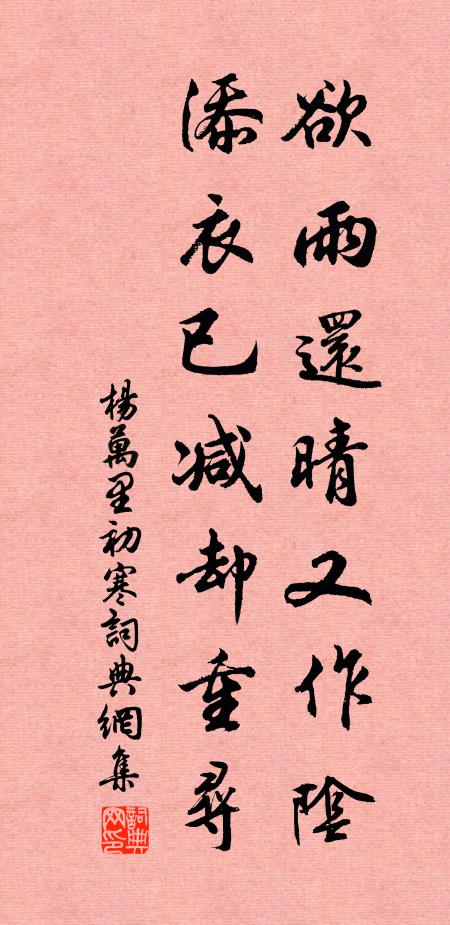 欲雨還晴又作陰
添衣已减却重尋
楊萬里初寒詞典網集
詞典网印